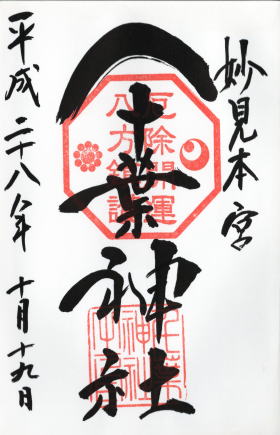 妙見本宮
千葉神社
平成二十八年 十月十九日
厄除開運
八方鎮護
千葉
神社